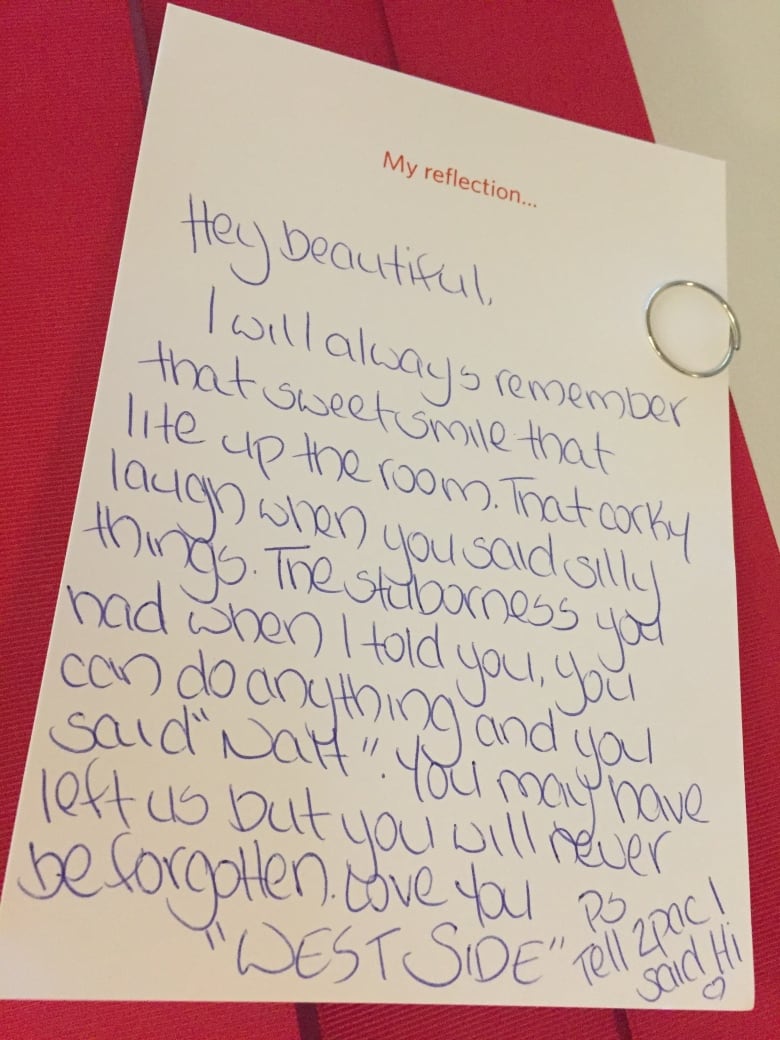 My reflection...
Hey beautiful,
I will always remember
that sweet smile that
lite up the room. That corky
laugh when you said silly
things. The stuborness you
had when I told you, you
can do anything and you
said "NaH". You may have
left us but you will never
be forgotten. Love You
"WEST SIDE"
PS
Tell 2pac I
said Hi